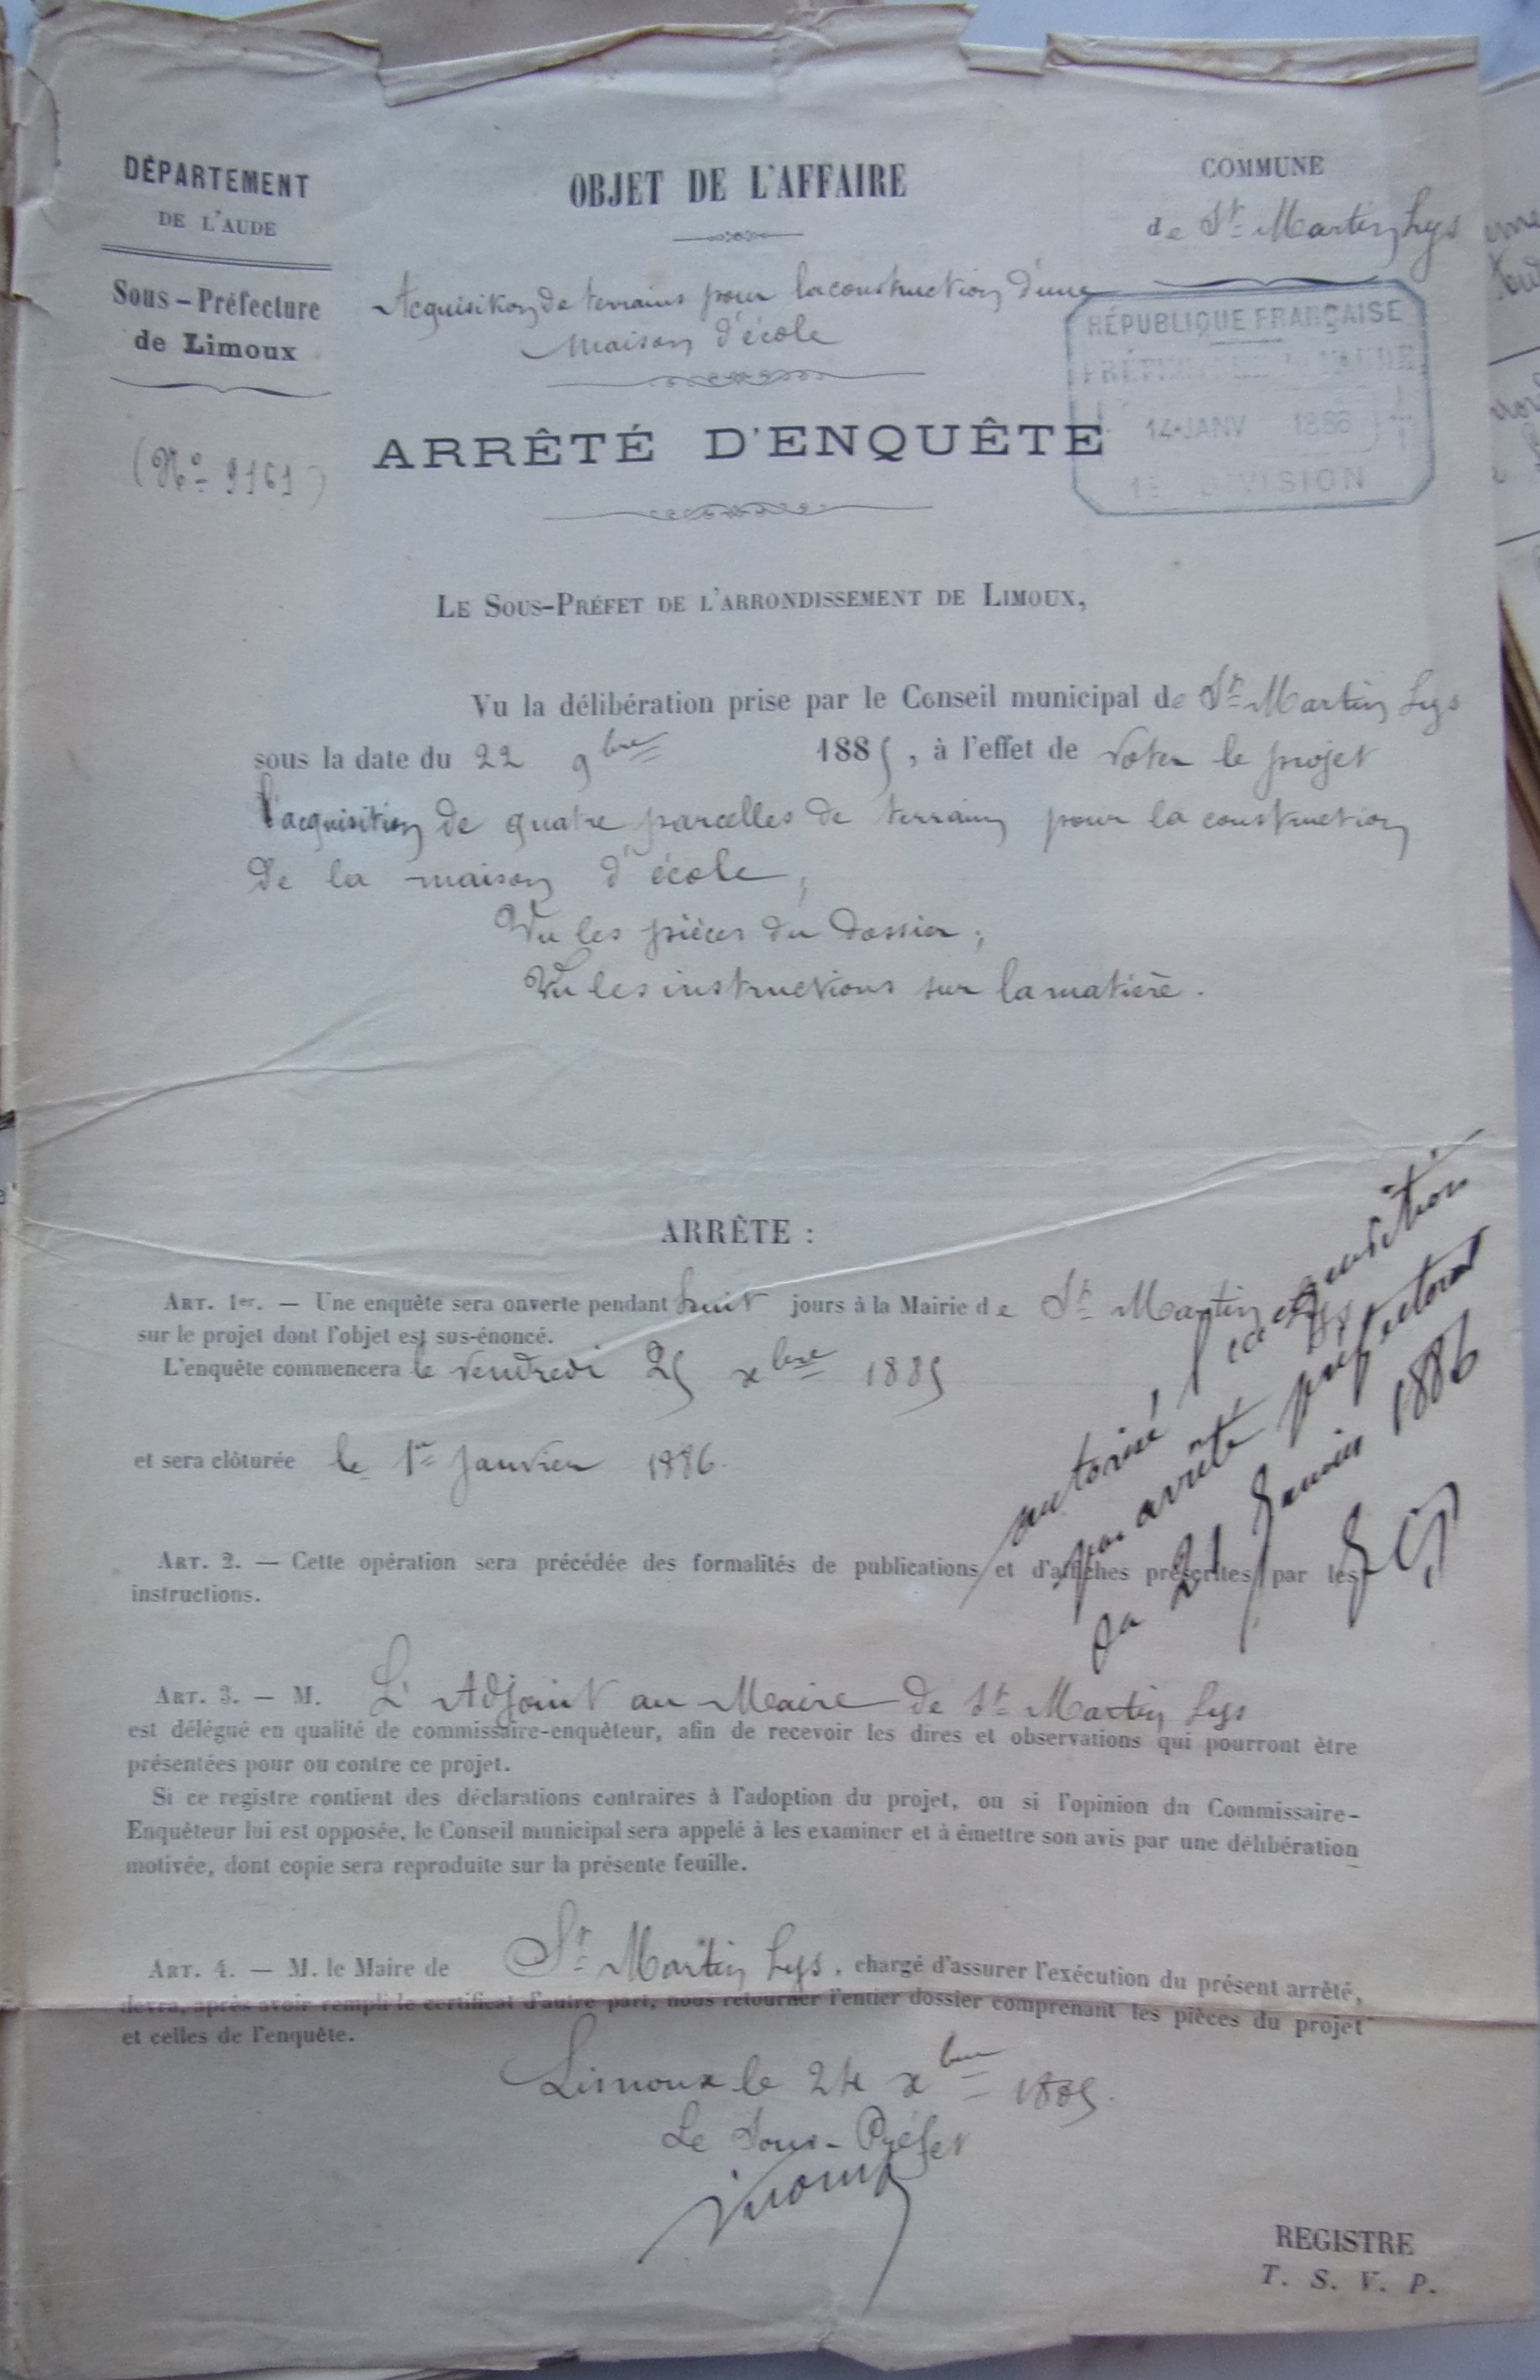 DÉPARTEMENT
DE L'AUDE
Sous-Préfecture
de Limoux
(No 9161)
OBJET DE L'AFFAIRE
Acquisition de terrains pour la construction d'une
maison d'école
COMMUNE
de St Martin Lys
RÉPUBLIQUE FRANÇAISE
PRÉFECTURE DE L'AUDE
14 JANV 1886
1E DIVISION
ARRÊTÉ D'ENQUÊTE
LE SOUS-PRÉFET DE L'ARRONDISSEMENT DE LIMOUX,
Vu la délibération prise par le Conseil municipal de St Martin Lys
sous la date du 22 9bre 1885, à l'effet de voter le projet
l'acquisition de quatre parcelles de terrain pour la construction
de la maison d'école,
Vu les pièces du dossier;
Vu les instructions sur la matière.
ARRÊTE :
ART. 1er. — Une enquête sera ouverte pendant huit jours à la Mairie de St Martin Lys
sur le projet dont l'objet est sus-énoncé.
L'enquête commencera le vendredi 25 xbre 1885
et sera clôturée le 1er Janvier 1886.
autorisé, l'acquisition
par arrêté préfectoral
du 21 Janvier 1886
ART. 2. — Cette opération sera précédée des formalités de publications et d'affiches prescrites par les
instructions.
ART. 3. — M. L'Adjoint au Maire de St Martin Lys
est délégué en qualité de commissaire-enquêteur, afin de recevoir les dires et observations qui pourront être
présentées pour ou contre ce projet.
Si ce registre contient des déclarations contraires à l'adoption du projet, ou si l'opinion du Commissaire-
Enquêteur lui est opposée, le Conseil municipal sera appelé à les examiner et à émettre son avis par une délibération
motivée, dont copie sera reproduite sur la présente feuille.
ART. 4. — M. le Maire de St Martin Lys, chargé d'assurer l'exécution du présent arrêté,
devra, après avoir rempli le certificat d'autre part, nous retourner l'entier dossier comprenant les pièces du projet
et celles de l'enquête.
Limoux le 24 xbre 1885.
Le Sous-Préfet
REGISTRE
T. S. V. P.